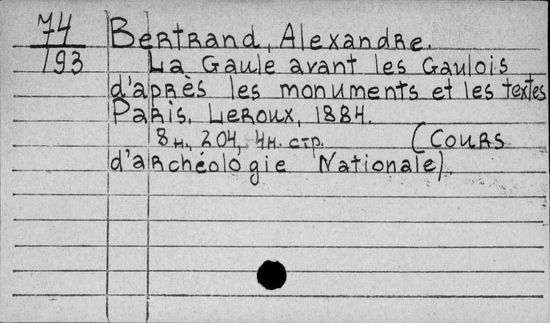 74 Bertrand, Alexandre.
193 La Gaule avant les Gaulois
d'après les monuments et les textes
Paris, Leroux, 1884.
8н., 204, 4н. стр. (Cours
d'archéologie Nationale).